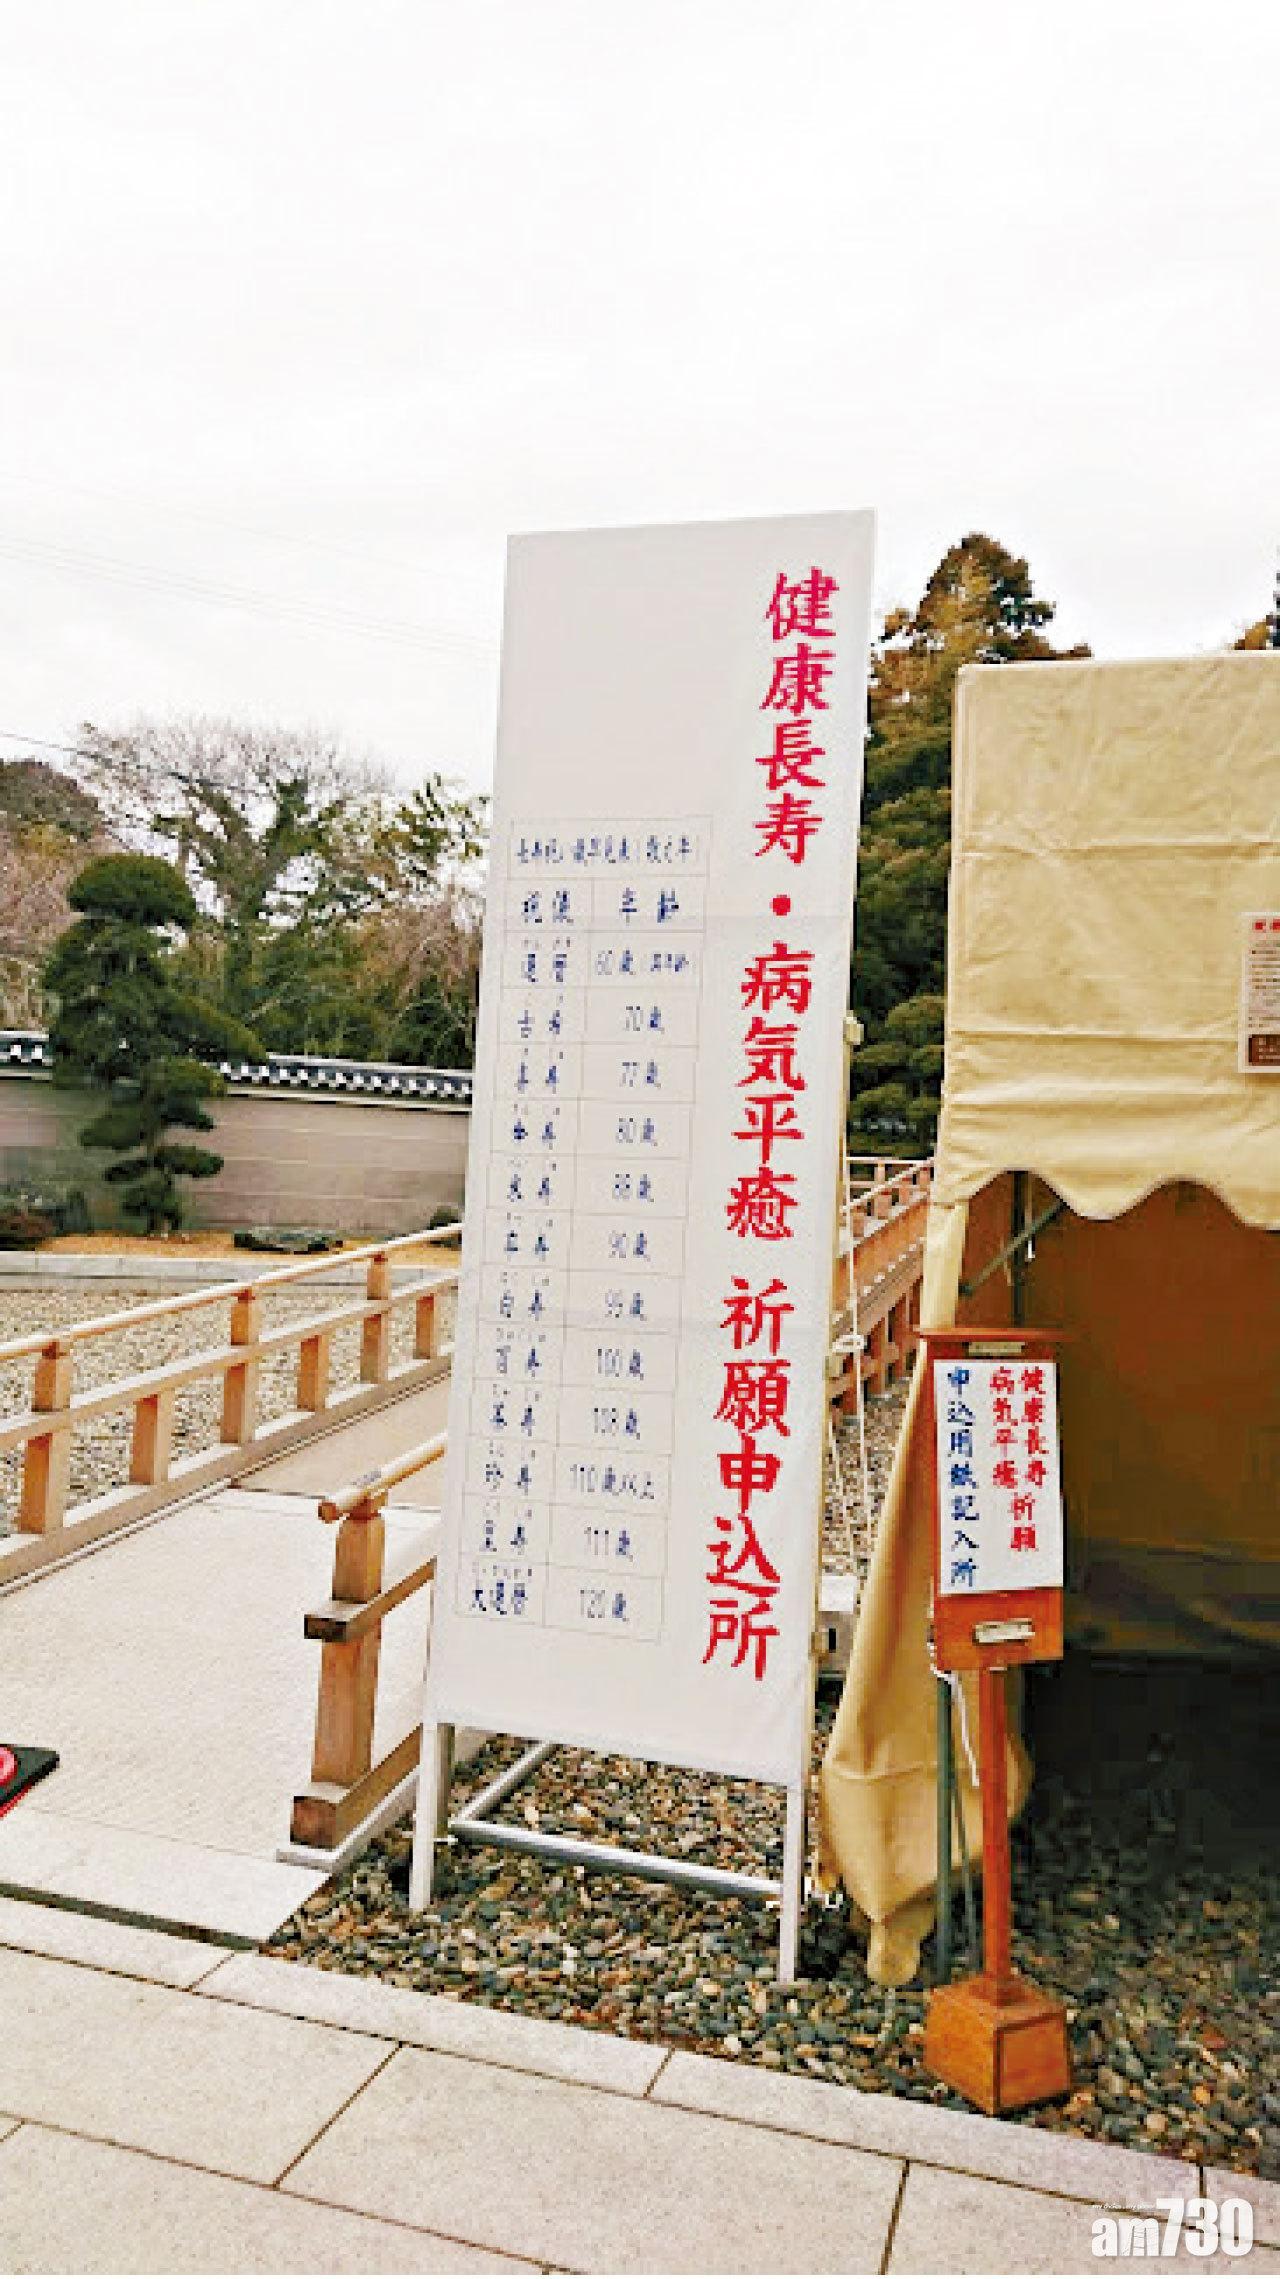 健康長寿・病気平癒 祈願申込所
祝儀 年齢
還暦 60歳
古寿 70歳
喜寿 77歳
傘寿 80歳
米寿 88歳
卒寿 90歳
白寿 99歳
百寿 100歳
茶寿 108歳
珍寿 110歳以上
皇寿 111歳
大還暦 120歳
健康長寿 祈願
病気平癒
申込用紙記入所
am730